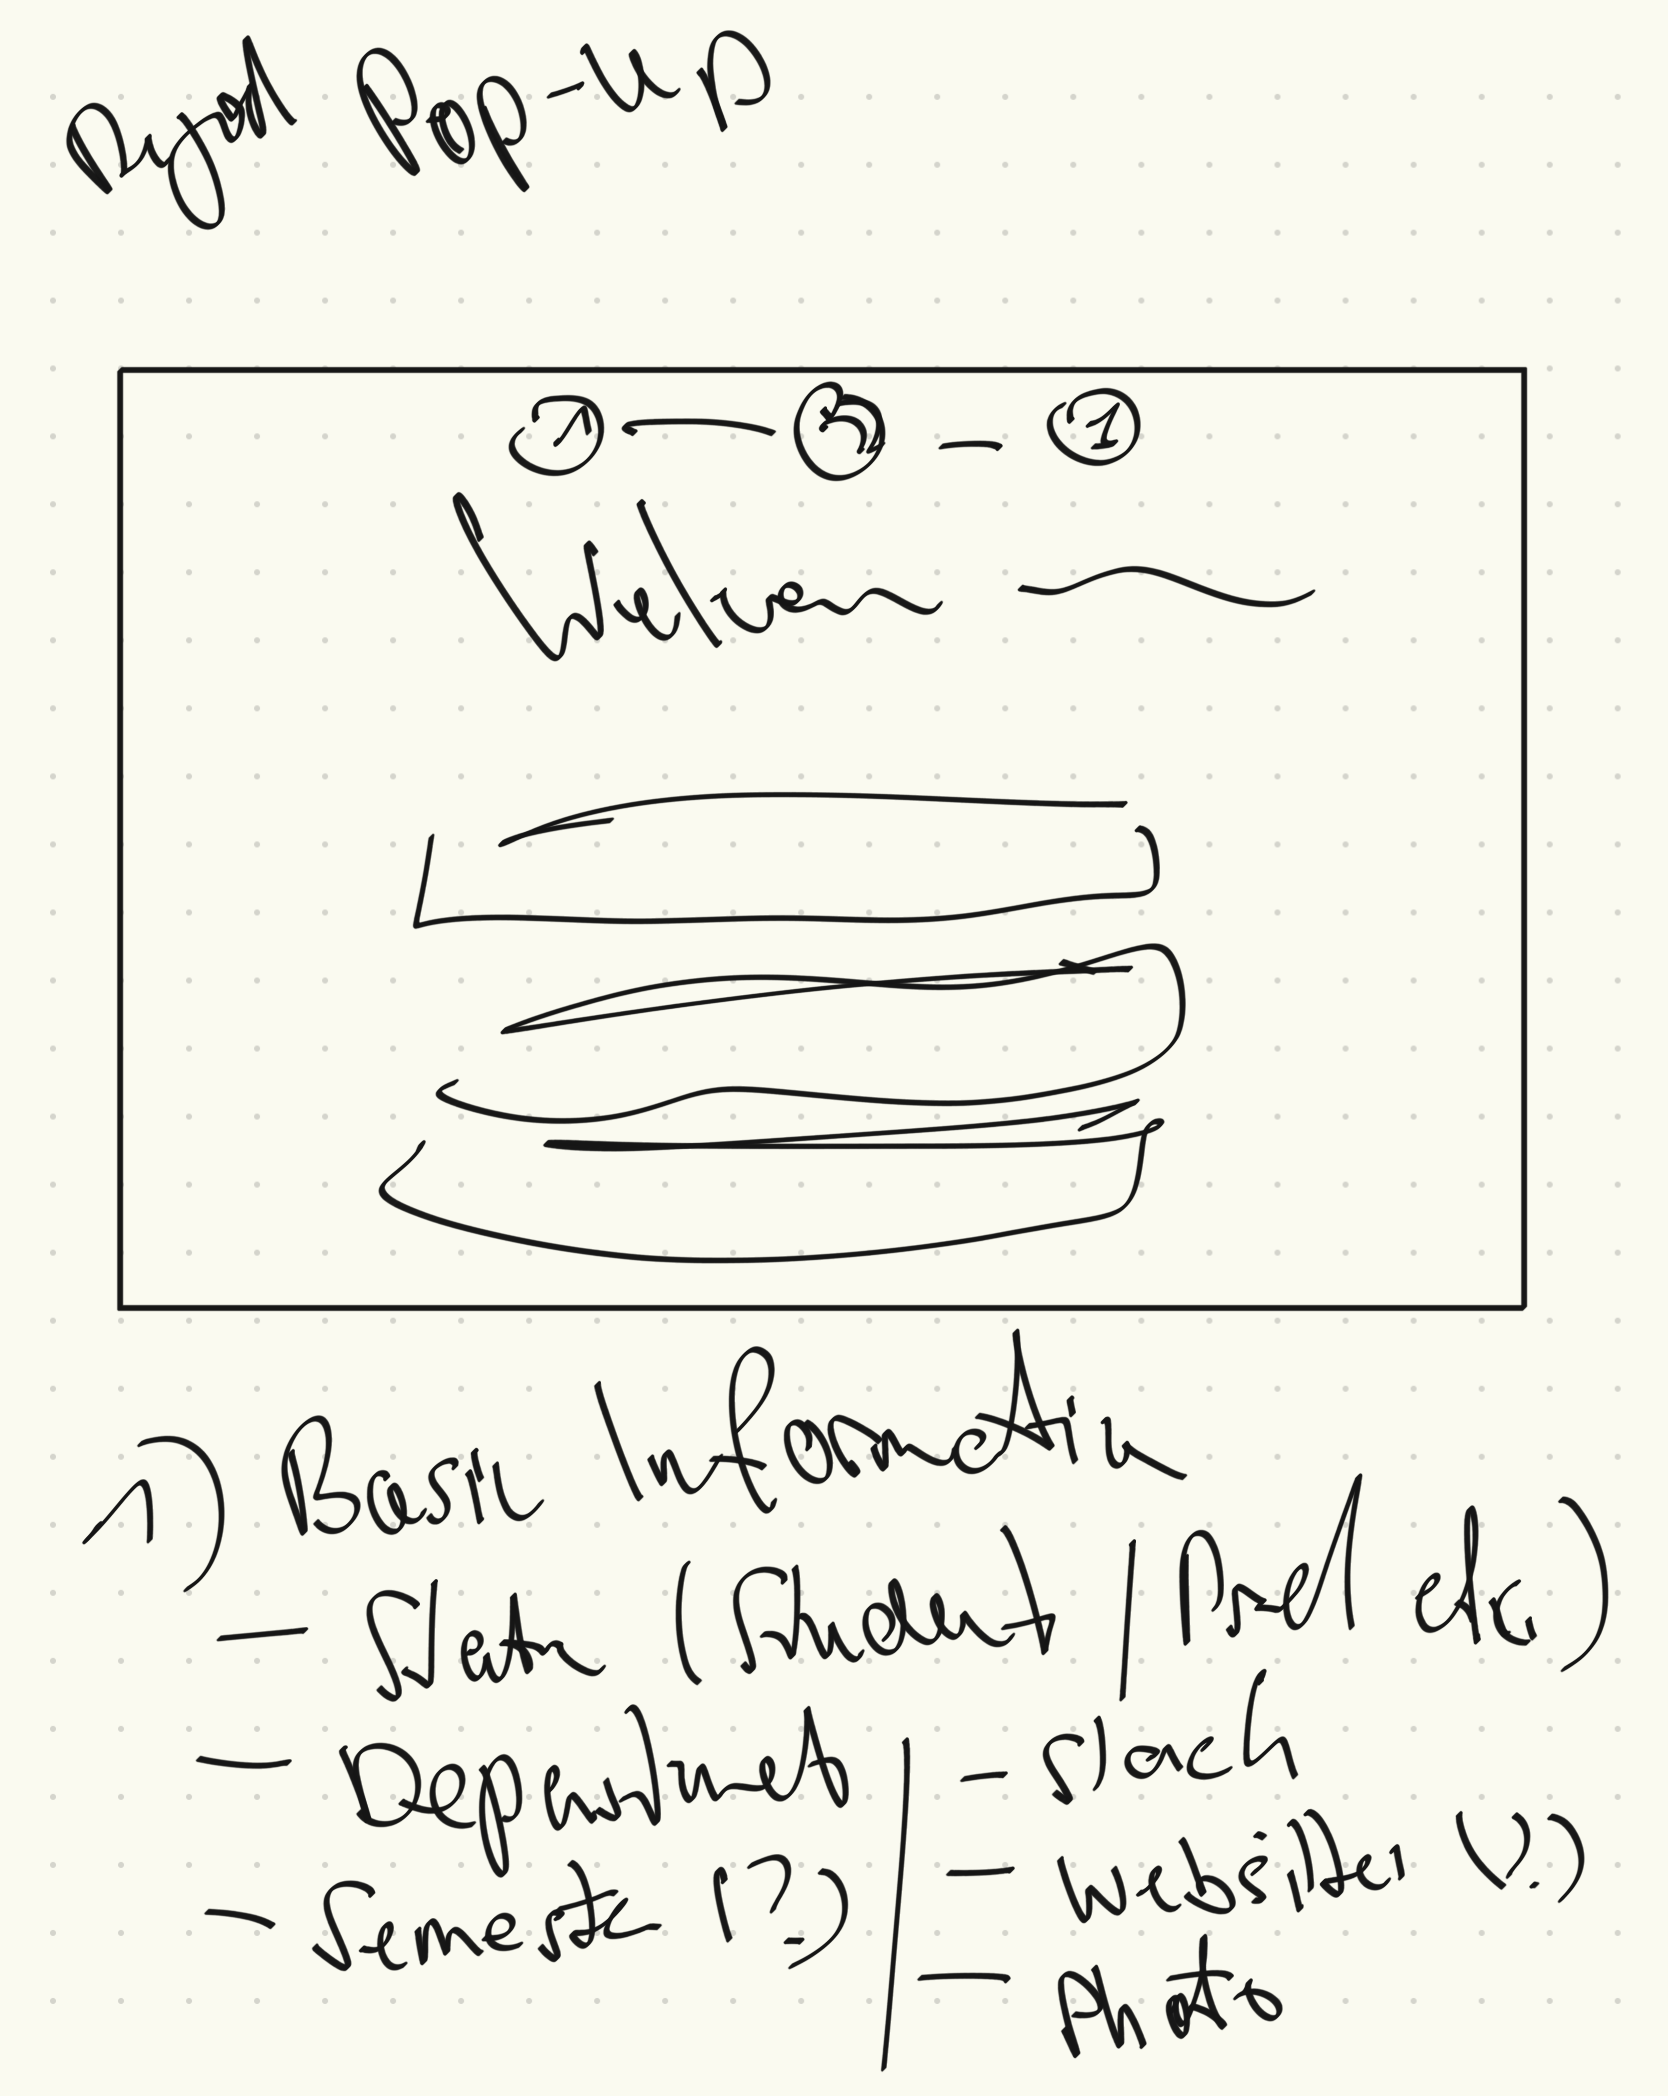 Pop-up
1 1
Welcom
1) Basic Information
- (Student / Prof etc)
- Department
- Semester (?)
- Slack
- Websites (?)
- Photo